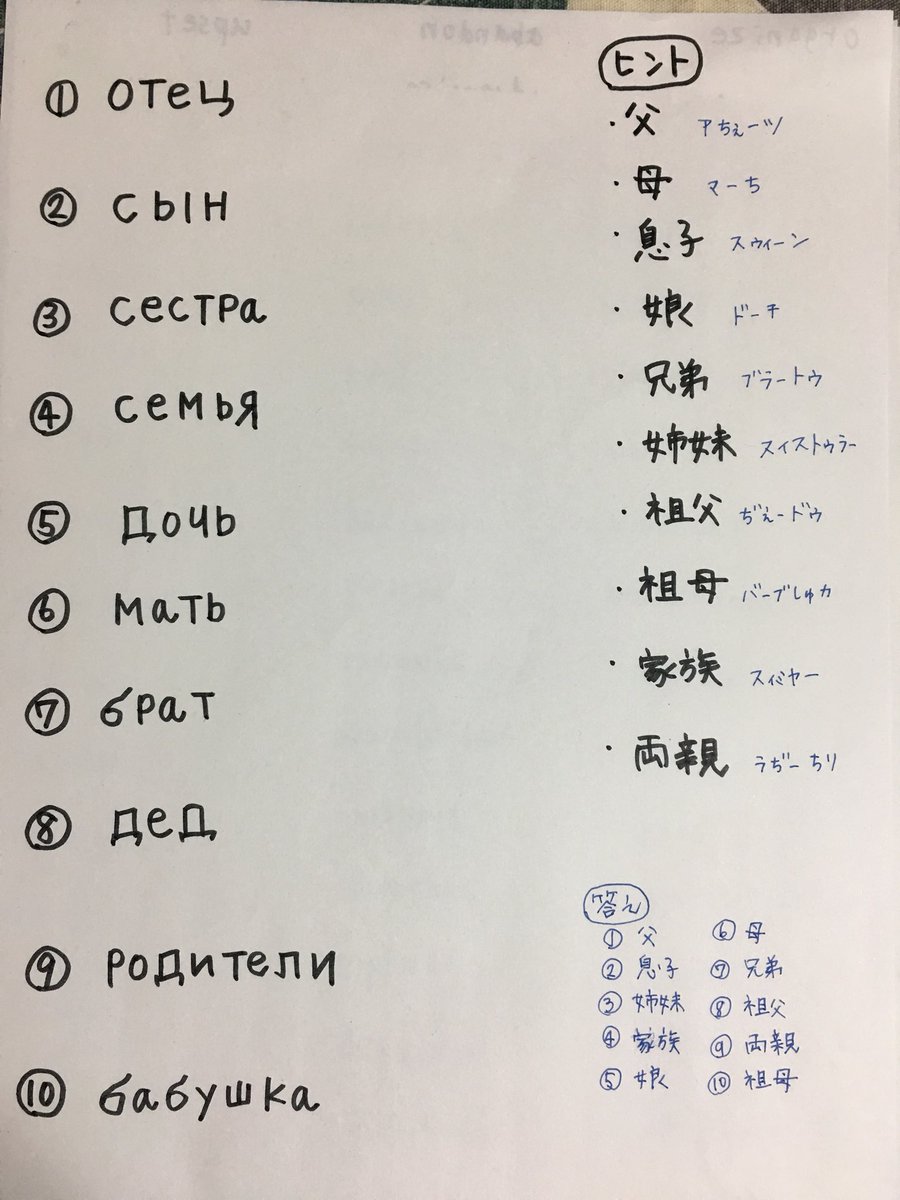 ① отец
② сын
③ сестра
④ семья
⑤ дочь
⑥ мать
⑦ брат
⑧ дед
⑨ родители
⑩ бабушка
ヒント
・父 アちぇーツ
・母 マーち
・息子 スウィーン
・娘 ドーチ
・兄弟 ブラートゥ
・姉妹 スィストゥラー
・祖父 ぢぇードゥ
・祖母 バーブしゅカ
・家族 スィミヤー
・両親 らぢーちリ
答え
① 父 ⑥ 母
② 息子 ⑦ 兄弟
③ 姉妹 ⑧ 祖父
④ 家族 ⑨ 両親
⑤ 娘 ⑩ 祖母
organize
abandon
upset